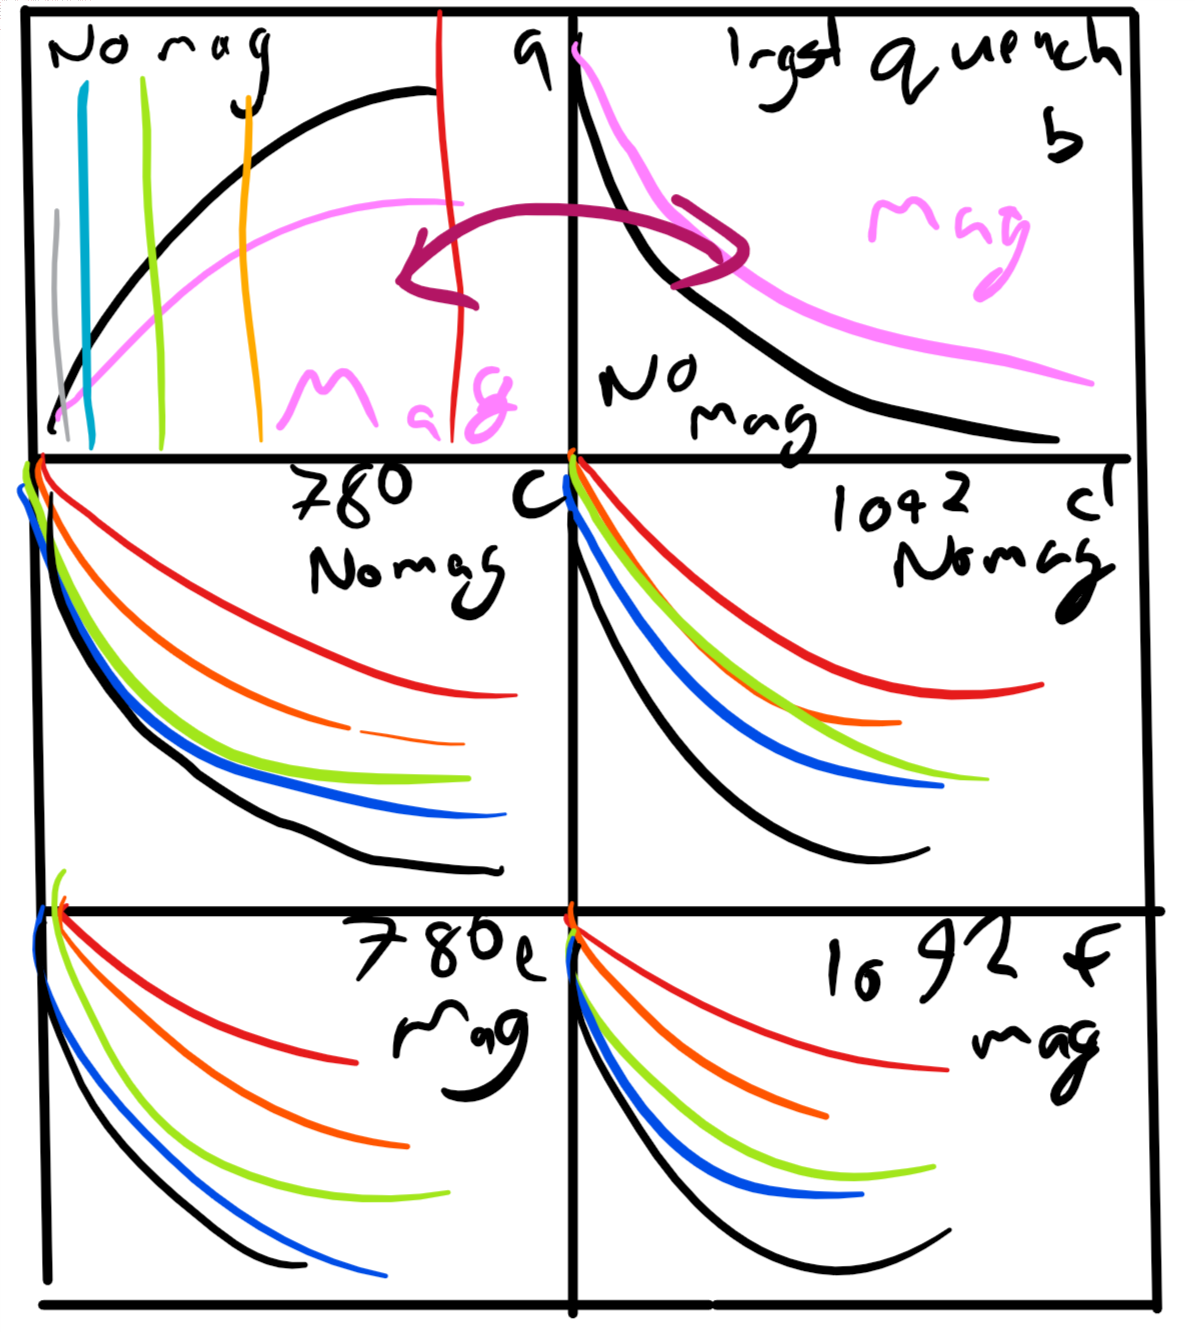 No mag a
Mag
Irgst quench
b
mag
No
mag
780 c
No mag
1042 c'
No mag
780 e
mag
1092 f
mag